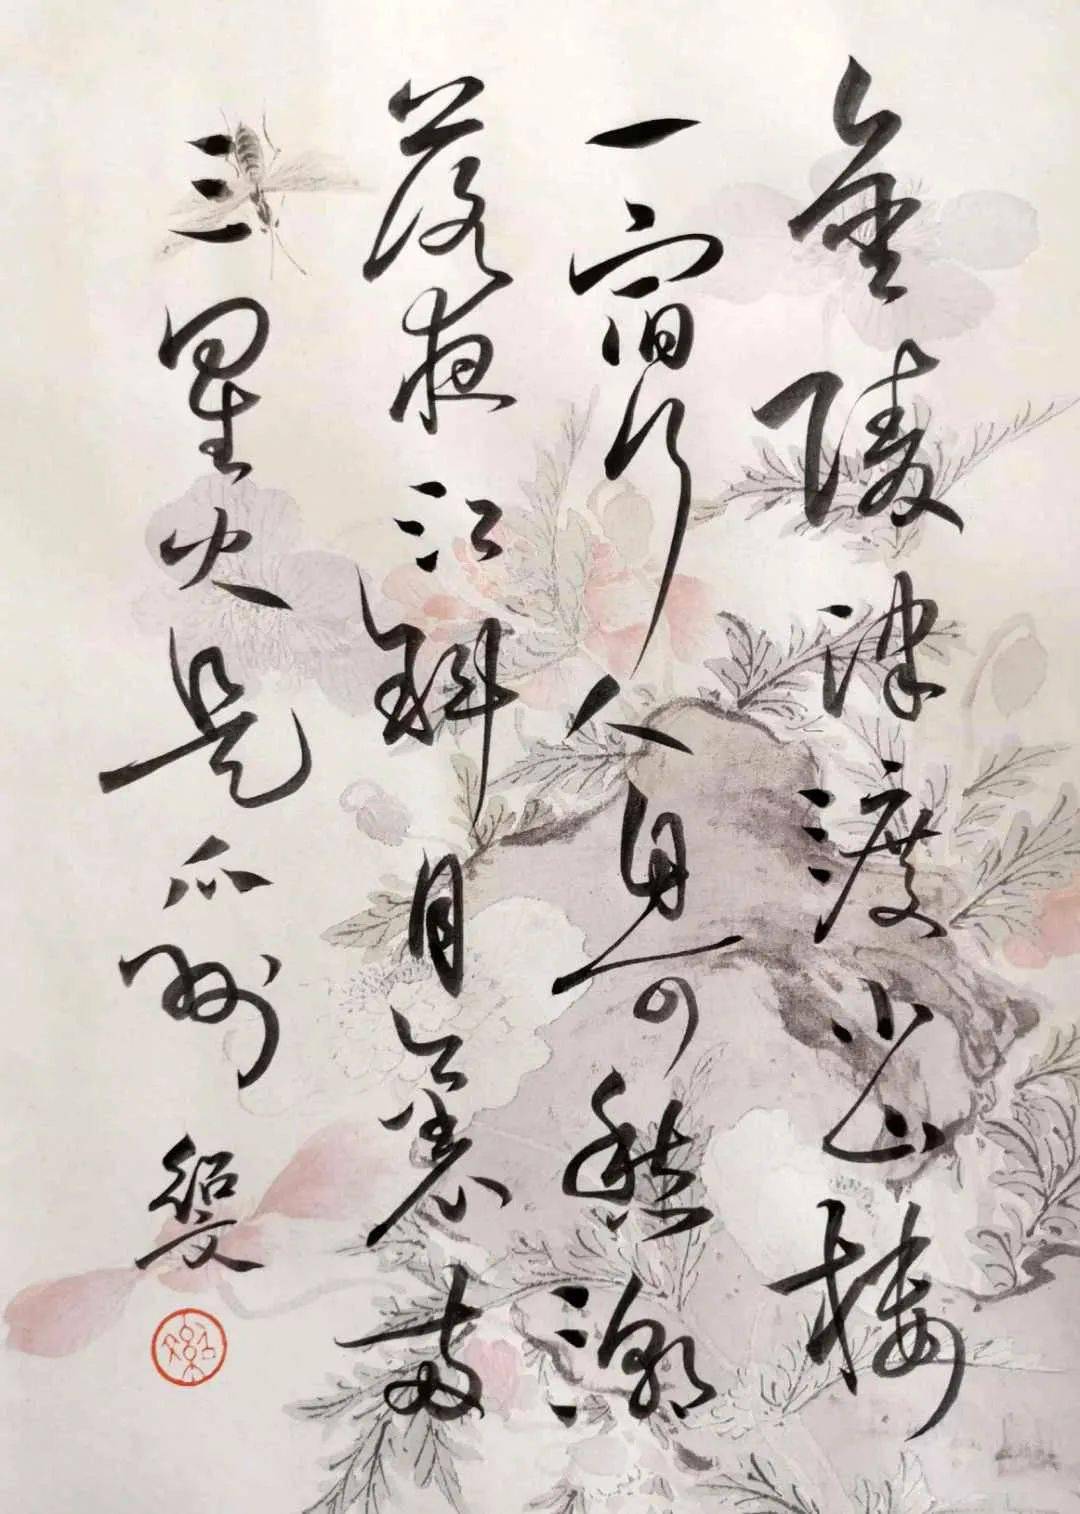 金陵津渡小山樓
一宿行人自可愁潮
落夜江斜月裏两
三星火是瓜州